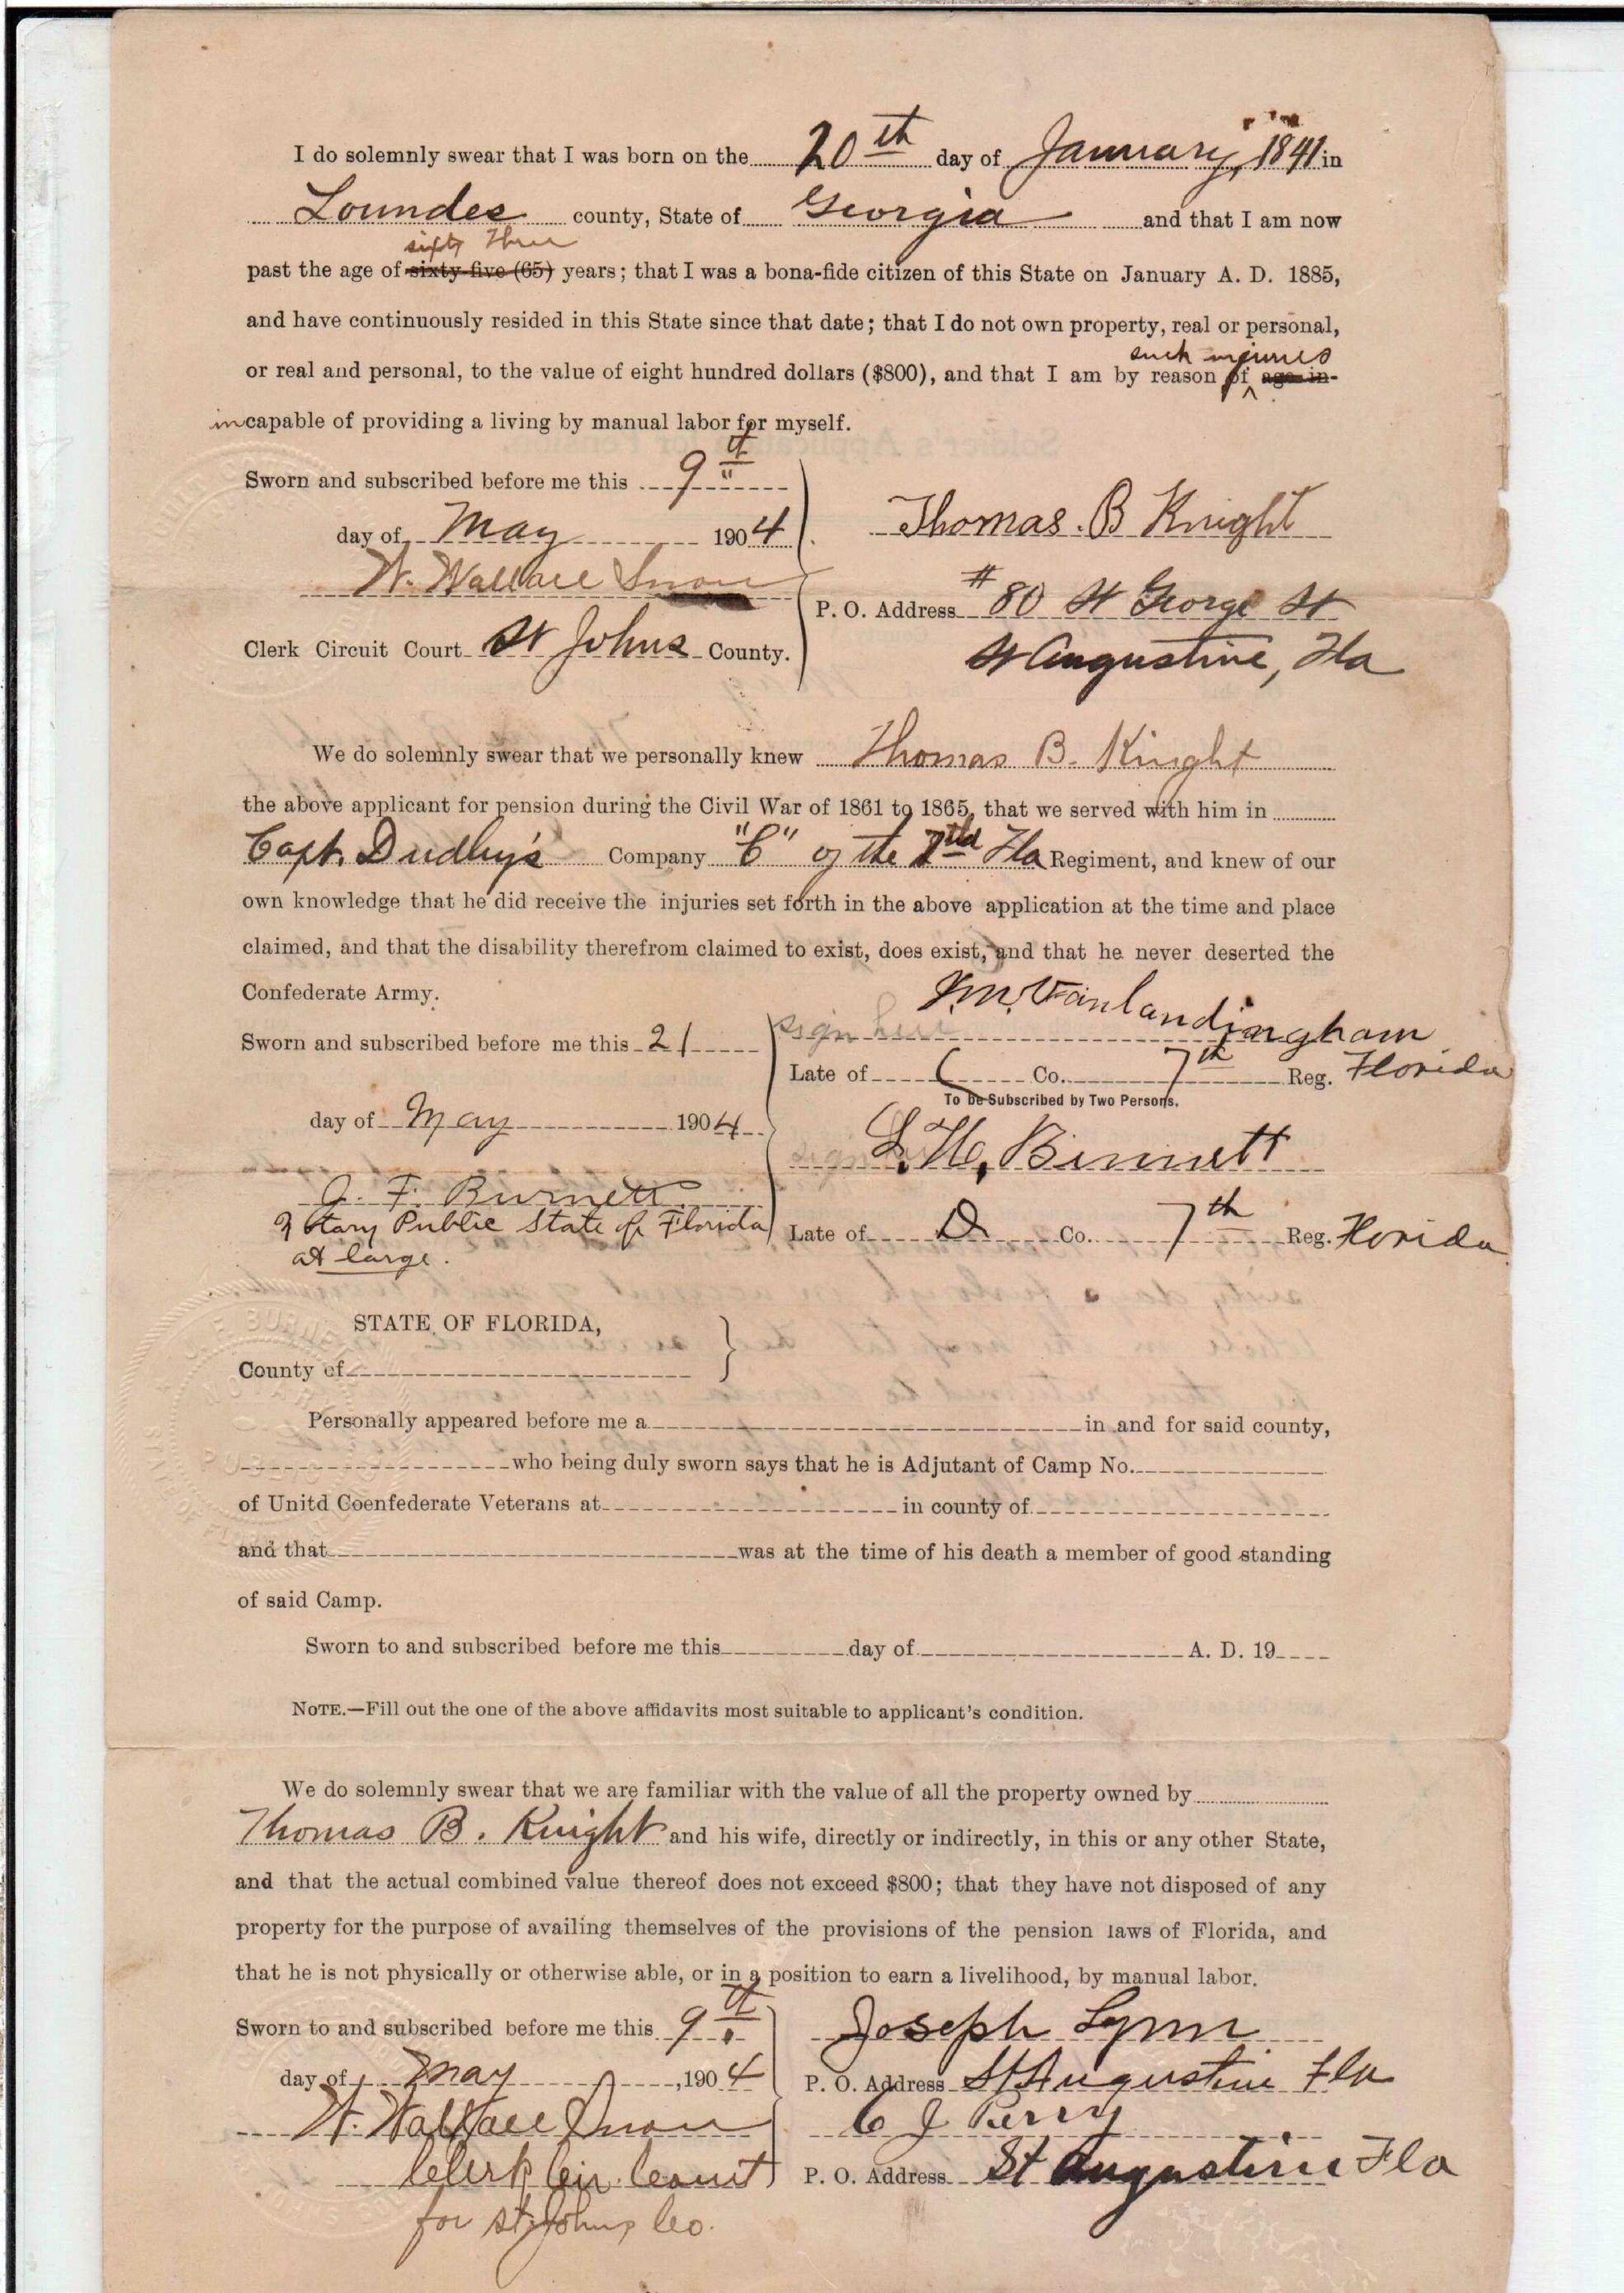 I do solemnly swear that I was born on the 20th day of January, 1841 in
Lowndes county, State of Georgia and that I am now
sixty three
past the age of sixty-five (65) years; that I was a bona-fide citizen of this State on January A. D. 1885,
and have continuously resided in this State since that date; that I do not own property, real or personal,
such injuries
or real and personal, to the value of eight hundred dollars ($800), and that I am by reason of age in-
incapable of providing a living by manual labor for myself.
Sworn and subscribed before me this 9th
day of May 1904
Thomas. B Knight
W. Wallace Snow
P. O. Address #80 St George St
Clerk Circuit Court St Johns County.
St Augustine, Fla
We do solemnly swear that we personally knew Thomas B. Knight
the above applicant for pension during the Civil War of 1861 to 1865, that we served with him in
Capt. Dudley's Company "C" of the 7th Fla Regiment, and knew of our
own knowledge that he did receive the injuries set forth in the above application at the time and place
claimed, and that the disability therefrom claimed to exist, does exist, and that he never deserted the
Confederate Army.
Vanlandingham
Sworn and subscribed before me this 21
sign here
Late of C Co. 7th Reg. Florida
To be Subscribed by Two Persons.
day of May 1904
L. H. Binnett
J. F. Burnett
Notary Public State of Florida
Late of D Co. 7th Reg. Florida
at large.
STATE OF FLORIDA,
County of
Personally appeared before me a in and for said county,
who being duly sworn says that he is Adjutant of Camp No.
of Unitd Coenfederate Veterans at in county of
and that was at the time of his death a member of good standing
of said Camp.
Sworn to and subscribed before me this day of A. D. 19
NOTE.—Fill out the one of the above affidavits most suitable to applicant's condition.
We do solemnly swear that we are familiar with the value of all the property owned by
Thomas B. Knight and his wife, directly or indirectly, in this or any other State,
and that the actual combined value thereof does not exceed $800; that they have not disposed of any
property for the purpose of availing themselves of the provisions of the pension laws of Florida, and
that he is not physically or otherwise able, or in a position to earn a livelihood, by manual labor.
Sworn to and subscribed before me this 9th
Joseph Lynn
day of May, 1904
P. O. Address St Augustine Fla
W. Wallace Snow
C J Perry
Clerk Cir. Court
P. O. Address St Augustine Fla
for St. Johns Co.